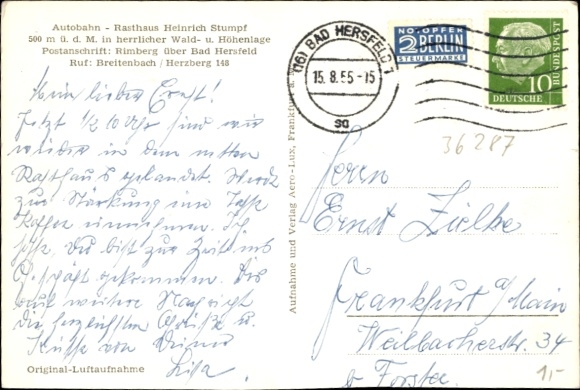 Autobahn - Rasthaus Heinrich Stumpf
500 m ü. d. M. in herrlicher Wald- u. Höhenlage
Postanschrift: Rimberg über Bad Hersfeld
Ruf: Breitenbach / Herzberg 148
Mein lieber Ernst!
Jetzt ½ 10 Uhr sind wir
wieder in dem netten
Rasthaus gelandet. Werde
zur Stärkung eine Tasse
Kaffee einnehmen. Ich
hoffe, Du bist zur Zeit ins
Geschäft gekommen. Bis
auf weitere Nachricht
die herzlichsten Grüße u.
Küsse von Deiner
Lisa
Original-Luftaufnahme
Aufnahme und Verlag Aero-Lux, Frankfurt a.
(16) BAD HERSFELD 1
15. 8. 55 - 15
sa
NOTOPFER
2 BERLIN
STEUERMARKE
DEUTSCHE BUNDESPOST
10
36287
Herrn
Ernst Zielke
Frankfurt a/Main
Weilbacherstr. 34
b Forster
1,-